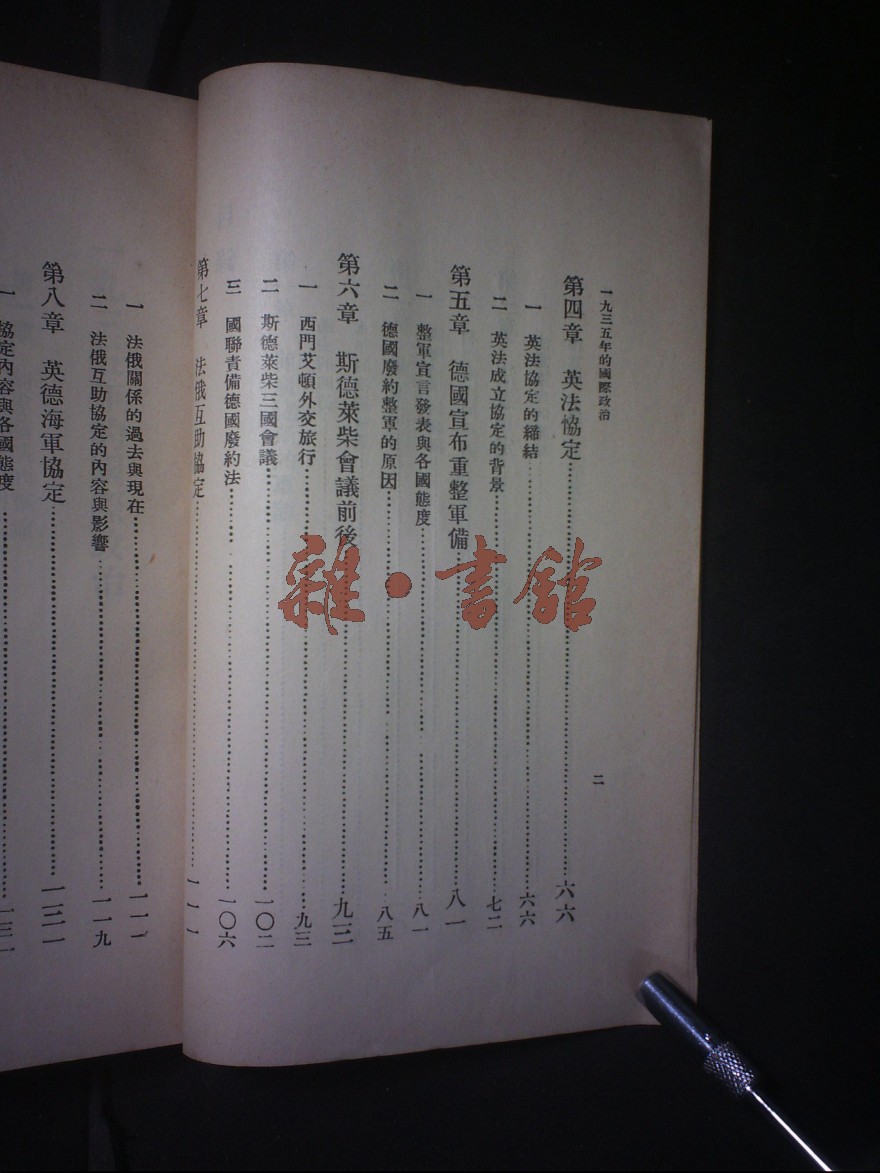 一九三五年的國際政治
二
第四章 英法協定……六六
一 英法協定的締結……六六
二 英法成立協定的背景……七二
第五章 德國宣布重整軍備……八一
一 整軍宣言發表與各國態度……八一
二 德國廢約整軍的原因……八五
第六章 斯德萊柴會議前後……九三
一 西門艾頓外交旅行……九三
二 斯德萊柴三國會議……一〇二
三 國聯責備德國廢約法……一〇六
第七章 法俄互助協定……一一一
一 法俄關係的過去與現在……一一一
二 法俄互助協定的內容與影響……一一九
第八章 英德海軍協定……一三一
一 協定內容與各國態度……一三一
雜·書館